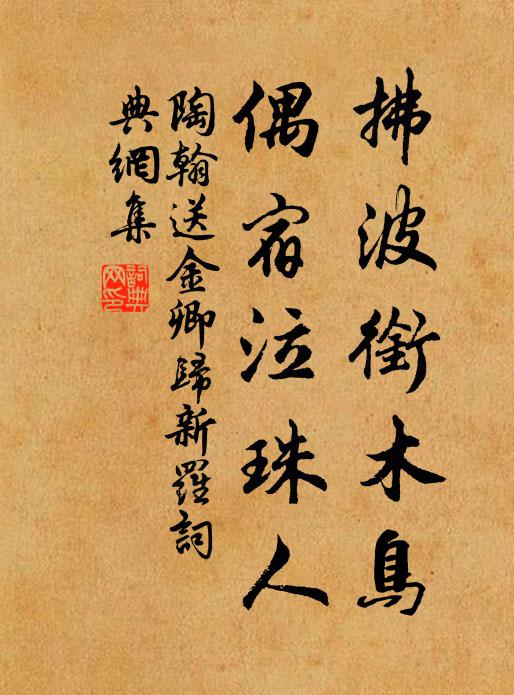 拂波銜木鳥
偶宿泣珠人
陶翰送金卿歸新羅詞
典網集
詞典网印